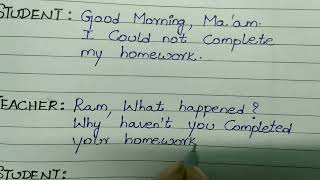 STUDENT: Good Morning, Ma'am.
I Could not Complete
my homework.
TEACHER: Ram, What happened?
Why haven't you Completed
your homework
STUDENT: